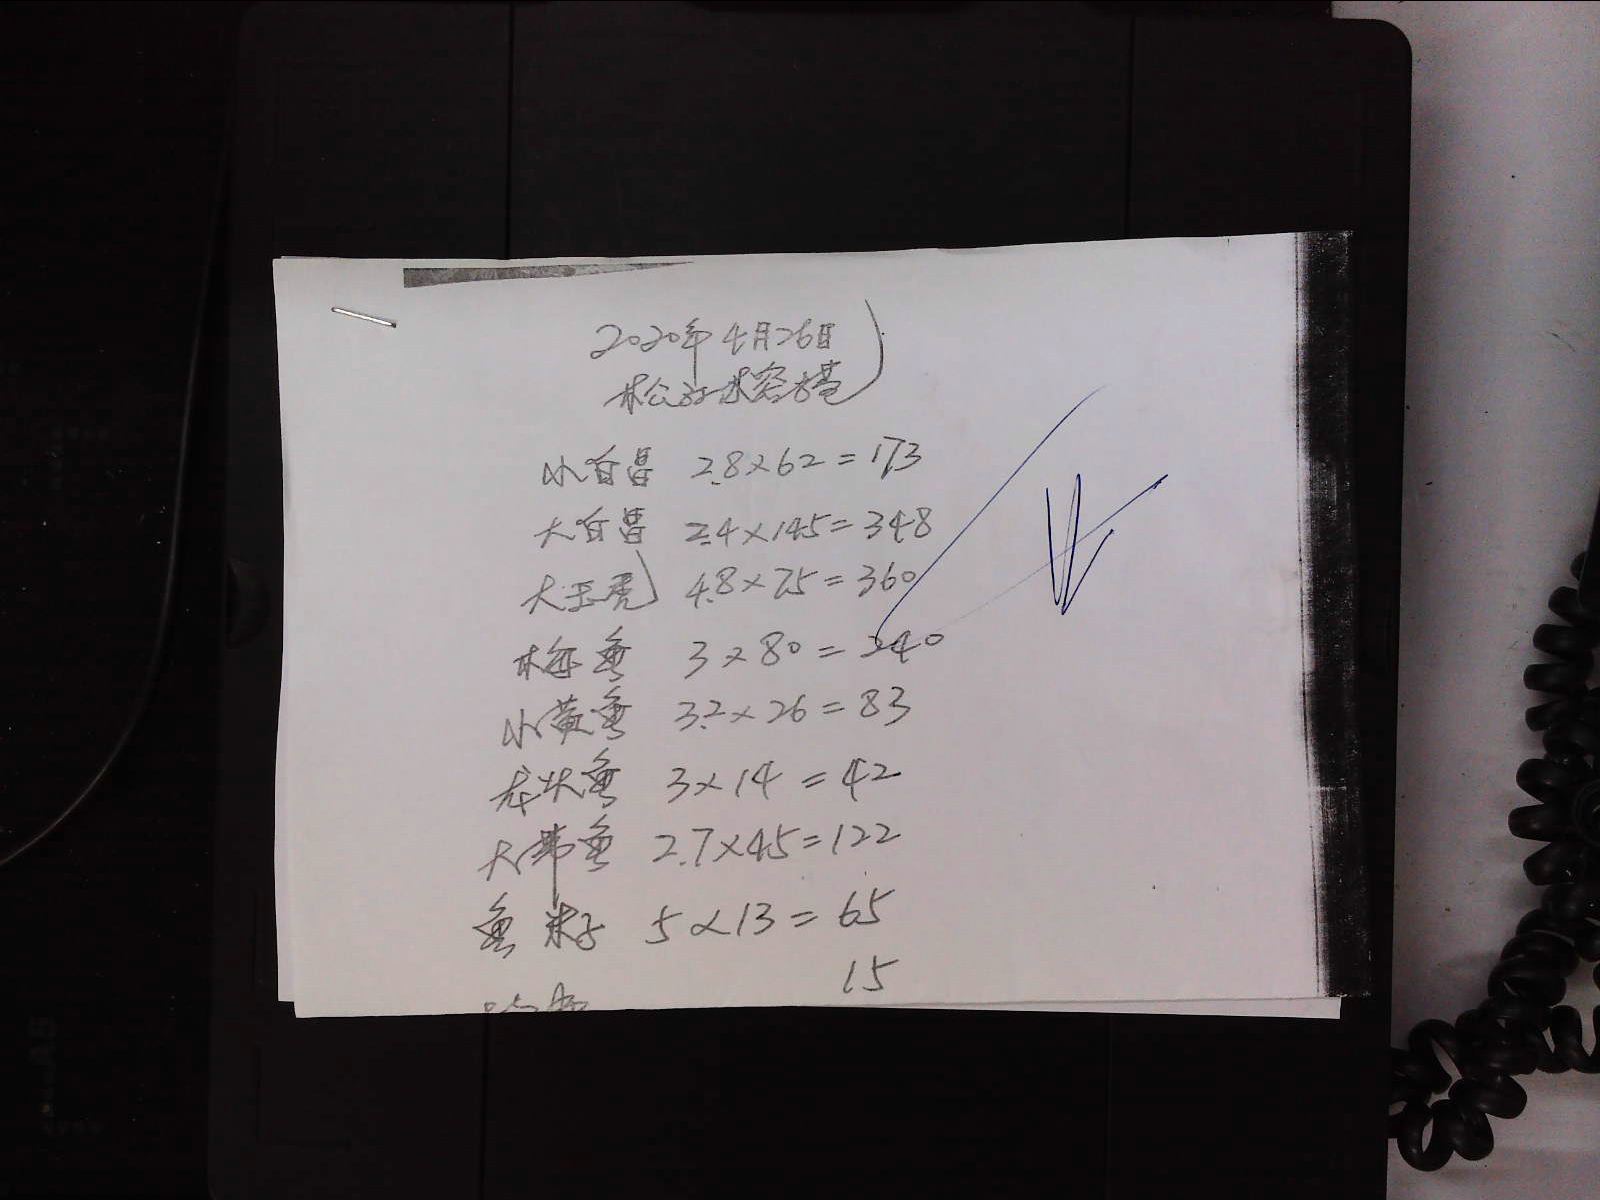 2020年4月26日
小白昌 2.8×62=173
大白昌 2.4×145=348
大玉秃 4.8×75=360
梅鱼 3×80=240
小黄鱼 3.2×26=83
龙头鱼 3×14=42
大带鱼 2.7×45=122
鱼籽 5×13=65
15